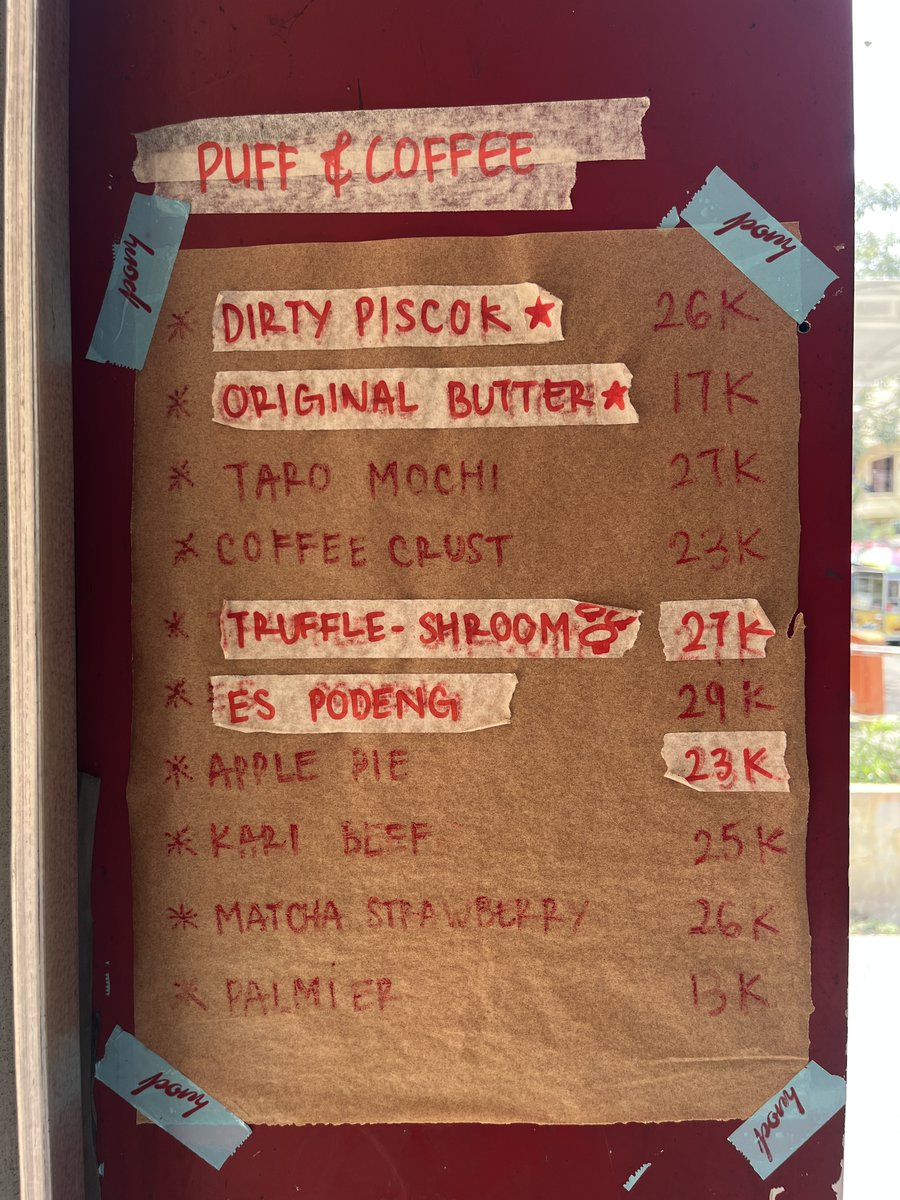 PUFF & COFFEE
pony
pony
* DIRTY PISCOK ★ 26K
* ORIGINAL BUTTER ★ 17K
* TARO MOCHI 27K
* COFFEE CRUST 23K
* TRUFFLE-SHROOM 27K
* ES PODENG 29K
* APPLE PIE 23K
* KARI BEEF 25K
* MATCHA STRAWBERRY 26K
* PALMIER 13K
pony
pony